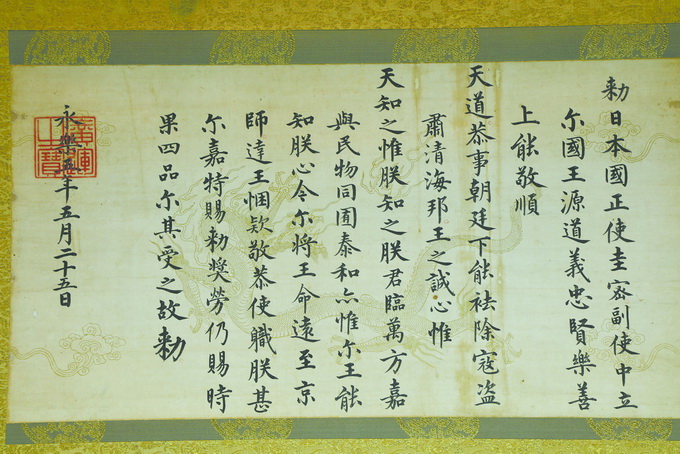 勑日本國正使圭密副使中立
尔國王源道義忠賢樂善
上能敬順
天道恭事朝廷下能祛除寇盗
肅清海邦王之誠心惟
天知之惟朕知之朕君臨萬方嘉
與民物同囿泰和亦惟尔王能
知朕心今尔将王命遠至京
師達王悃欵敬恭使職朕甚
尔嘉特賜勑奬勞仍賜時
果四品尔其受之故勑
永樂五年五月二十五日